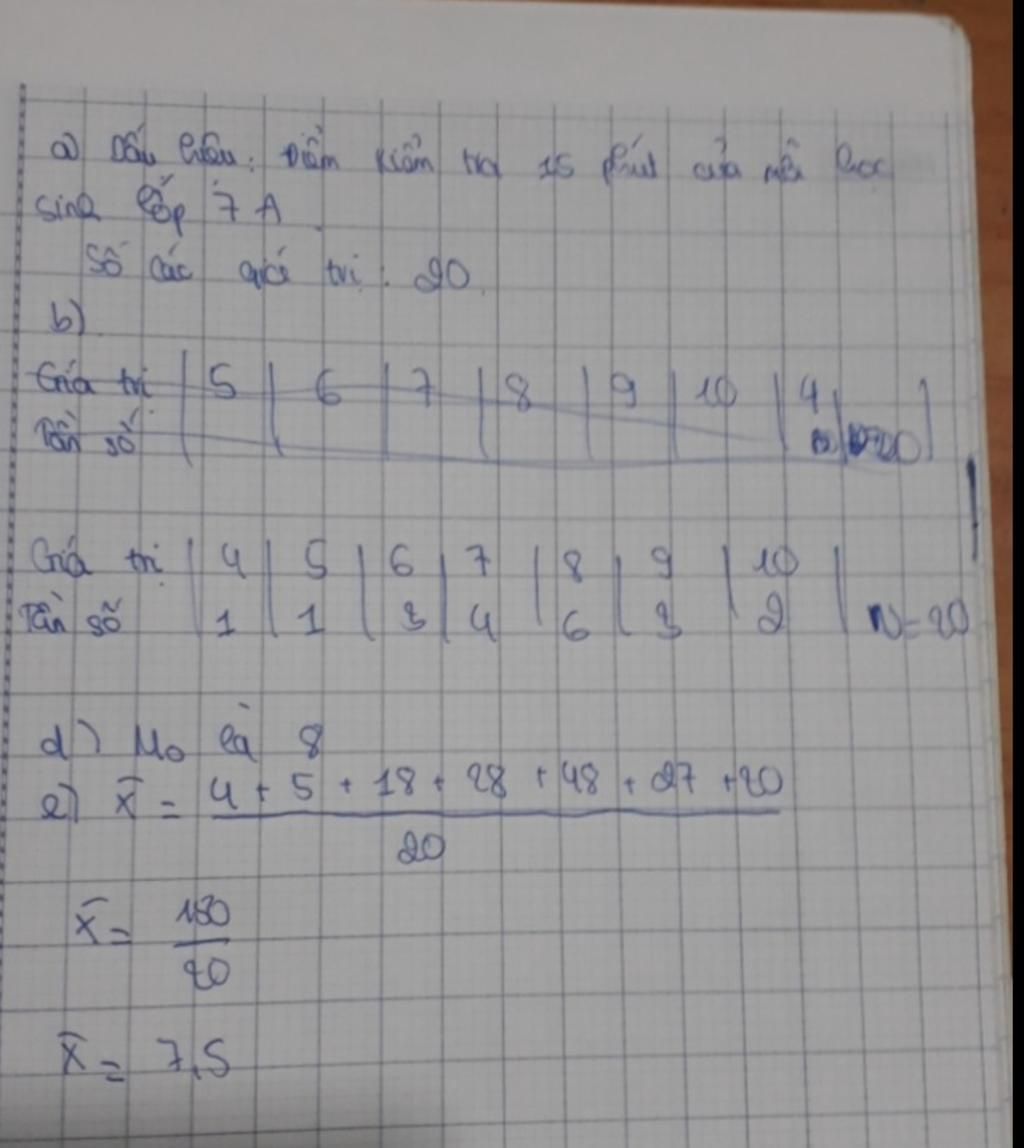 a) Dấu hiệu: Điểm kiểm tra 15 phút của mỗi học
sinh lớp 7A
Số các giá trị: 20
b)
Giá trị | 5 | 6 | 7 | 8 | 9 | 10 | 4
Tần số 20
Giá trị | 4 | 5 | 6 | 7 | 8 | 9 | 10 |
Tần số | 1 | 1 | 3 | 4 | 6 | 3 | 2 | N=20
d) Mo là 8
e) X̄ = 4 + 5 + 18 + 28 + 48 + 27 + 20
20
X̄ = 150
20
X̄ = 7,5